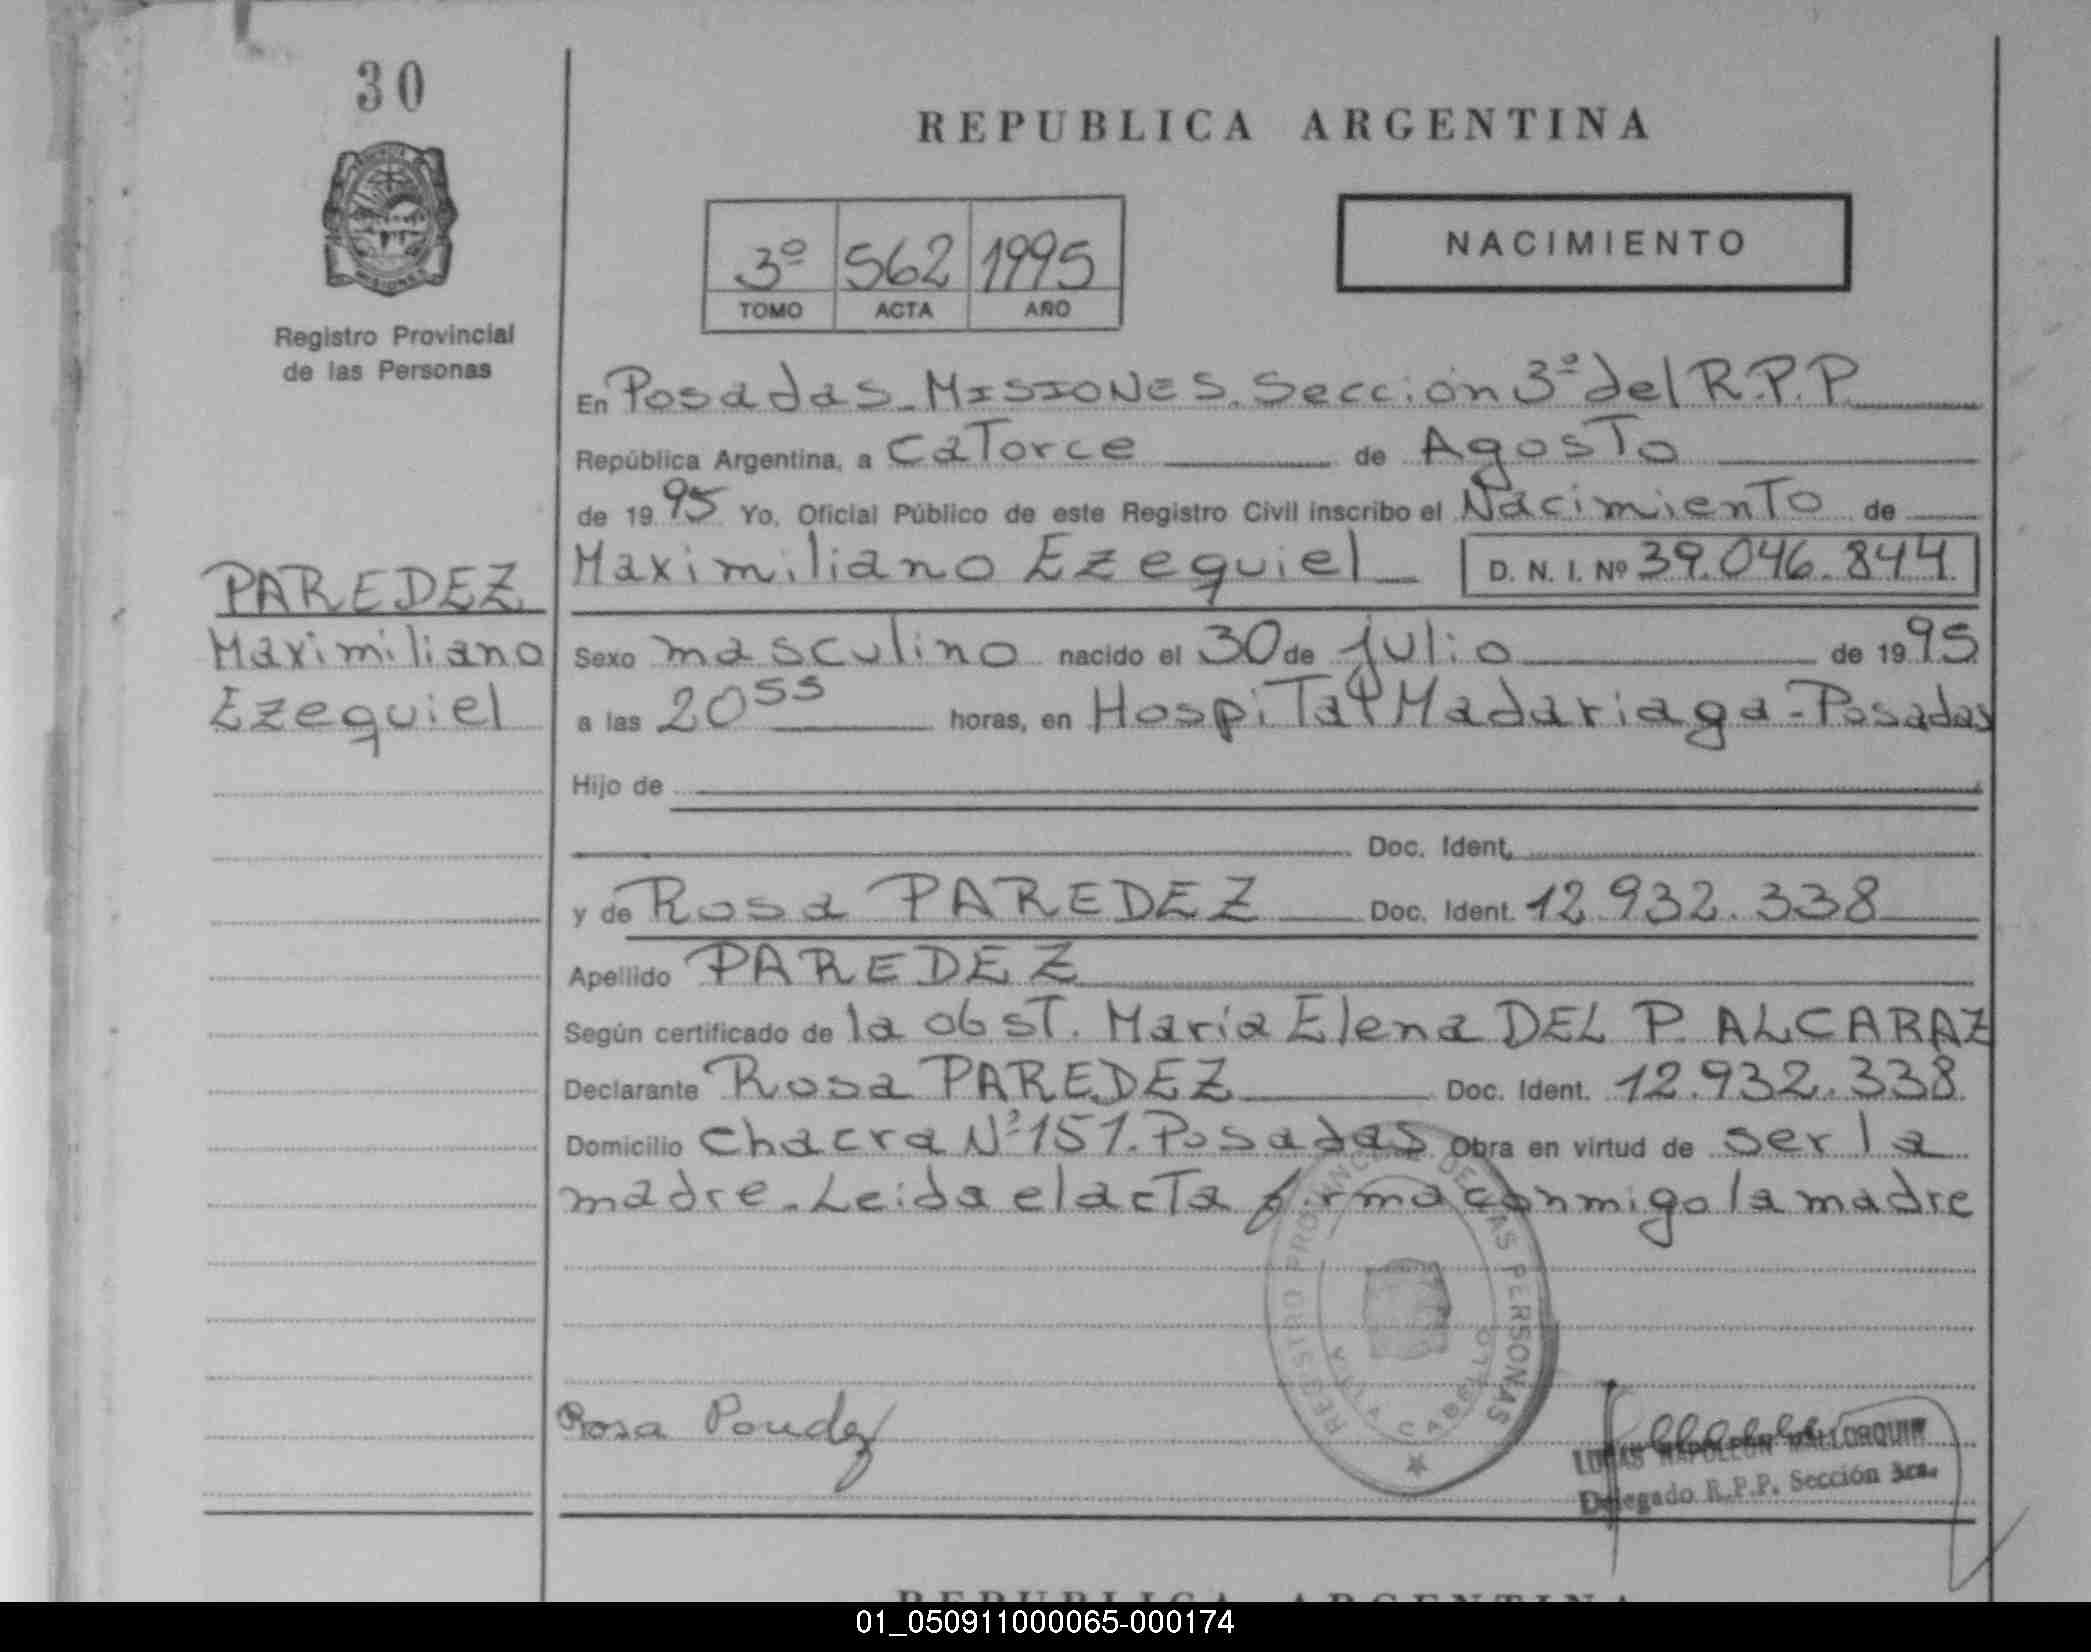 30
REPUBLICA ARGENTINA
3º 562 1995
TOMO ACTA AÑO
NACIMIENTO
Registro Provincial
de las Personas
En Posadas - MISIONES. Sección 3ª del R.P.P.
República Argentina, a CaTorce de AgosTo
de 1995 Yo, Oficial Público de este Registro Civil inscribo el NacimienTo de
Maximiliano Ezequiel D. N. I. Nº 39.046.844
PAREDEZ
Maximiliano
Ezequiel
Sexo masculino nacido el 30 de julio de 1995
a las 20 55 horas, en HospiTal Madariaga - Posadas
Hijo de
Doc. Ident.
y de Rosa PAREDEZ Doc. Ident. 12.932.338
Apellido PAREDEZ
Según certificado de la obsT. María Elena DEL P. ALCARAZ
Declarante Rosa PAREDEZ Doc. Ident. 12.932.338
Domicilio chacra Nº 151. Posadas Obra en virtud de ser la
madre. Leida el acTa firma conmigo la madre
REGISTRO PROVINCIAL DE LAS PERSONAS
VILLA CABELLO
Rosa Paredez
LUCAS NAPOLEON MALLORQUIN
Delegado R.P.P. Sección 3ra.
REPUBLICA ARGENTINA
01_050911000065-000174